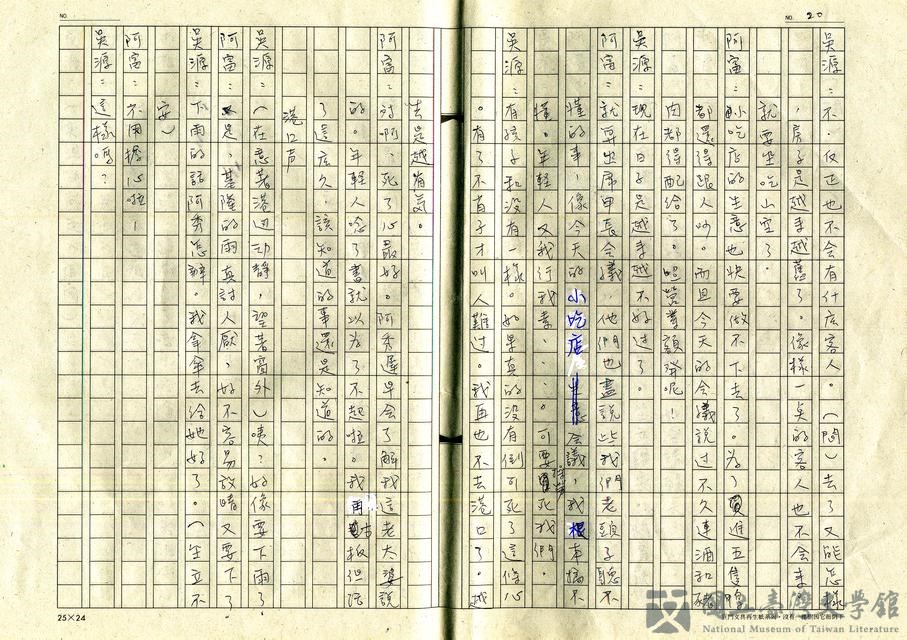 NO. 20
吳源：不，反正也不會有什広客人。（悶）去了又能怎樣
，房子是越來越舊了。像樣一点的客人也不會來
就要坐吃山空了。
阿富：小吃店的生意也快要做不下去了。為了買進五隻
都還得跟人吵。而且今天的会議說过不久連酒和豬
肉都得配給了。照營業額発呢！
吳源：現在日子是越來越不好过了。
阿富：就算出席甲長会議，他們也盡說些我們老頭子聽不
懂的事，像今天的小吃店会議，我根本搞不
懂。年輕人又我行我素……。可要死我們。
吳源：有孩子和沒有一樣。如果真的沒有倒可死了這條心
。有了不肖子才叫人難过。我再也不去港口了。越
去是越有気。
阿富：对啊，死了心最好。阿秀遲早会了解我這老太婆說
的。年輕人唸了書就以為了不起啦。我再古板但活
了這広久，該知道的事還是知道的。
港口声
吳源：（在意著港边动静，望著窗外）咦？好像要下雨了。
阿富：是，基隆的雨真討人厭，好不容易放晴又要下了
吳源：下雨的話阿秀怎辦。我拿傘去給她好了。（坐立不
安）
阿富：不用擔心啦！
吳源：這樣嗎？
NO.
25×24
國立臺灣文學館
National Museum of Taiwan Literature